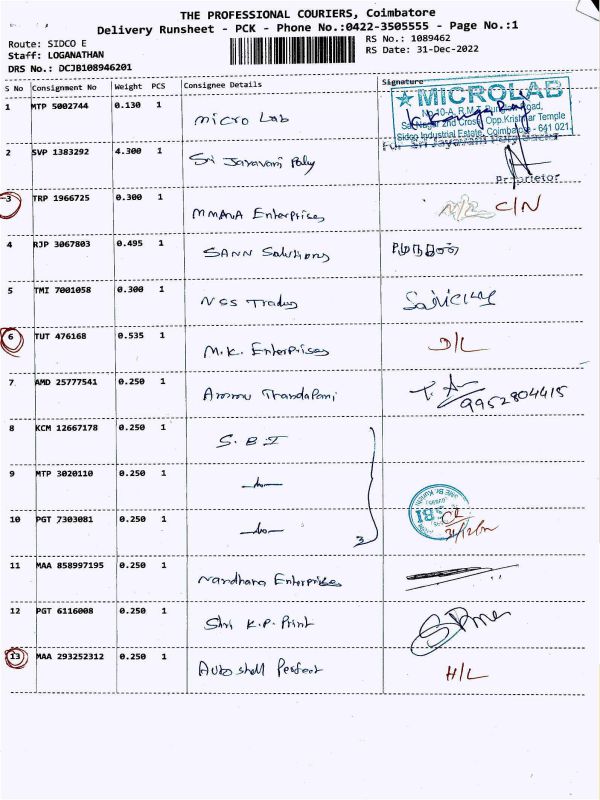 THE PROFESSIONAL COURIERS, Coimbatore
Delivery Runsheet - PCK - Phone No.:0422-3505555 - Page No.:1
Route: SIDCO E
RS No.: 1089462
Staff: LOGANATHAN
RS Date: 31-Dec-2022
DRS No.: DCJB108946201
S No Consignment No Weight PCS Consignee Details Signature
1 MTP 5002744 0.130 1 Micro Lab
MICROLAB
Opp.Krishnar Temple
Sidco Industrial Estate, Coimbatore - 641 021.
2 SVP 1383292 4.300 1 Sri Jayavani Poly
For Sri Jayavani Poly Sacks
Proprietor
3 TRP 1966725 0.300 1 MMANA Enterprises C/N
4 RJP 3067803 0.495 1 SANN Solutions
5 TMI 7001058 0.300 1 NSS Trading
6 TUT 476168 0.535 1 M.K. Enterprises D/L
7 AMD 25777541 0.250 1 Ammu Thandapani 9952804415
8 KCM 12667178 0.250 1 S.B.I
9 MTP 3020110 0.250 1 —do—
10 PGT 7303081 0.250 1 —do— 3
SBI
31/12/22
11 MAA 858997195 0.250 1 Nandhana Enterprises
12 PGT 6116008 0.250 1 Shri K.P. Print
13 MAA 293252312 0.250 1 Auto shell Perfect H/L